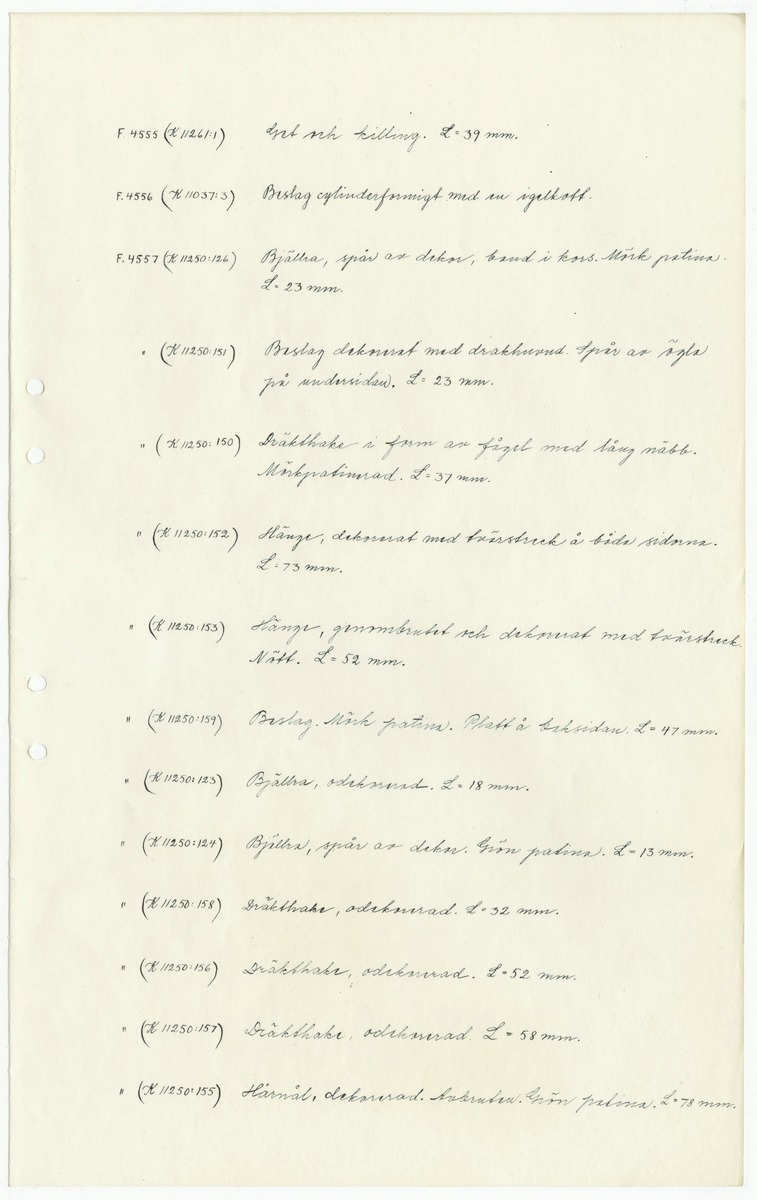 F. 4555 (K 11261:1) Get och killing. L= 39 mm.
F. 4556 (K 11037:3) Beslag cylinderformigt med en igelkott.
F. 4557 (K 11250:126) Bjällra, spår av dekor, band i kors. Mörk patina.
L= 23 mm.
" (K 11250:151) Beslag dekorerat med drakhuvud. Spår av ögla
på undersidan. L= 23 mm.
" (K 11250:150) Dräkthake i form av fågel med lång näbb.
Mörkpatinerad. L= 37 mm.
" (K 11250:152) Hänge, dekorerat med tvärstreck å båda sidorna.
L= 73 mm.
" (K 11250:153) Hänge, genombrutet och dekorerat med tvärstreck.
Nött. L= 52 mm.
" (K 11250:159) Beslag. Mörk patina. Platt å baksidan. L= 47 mm.
" (K 11250:123) Bjällra, odekorerad. L= 18 mm.
" (K 11250:124) Bjällra, spår av dekor. Grön patina. L= 13 mm.
" (K 11250:158) Dräkthake, odekorerad. L= 32 mm.
" (K 11250:156) Dräkthake, odekorerad. L= 52 mm.
" (K 11250:157) Dräkthake, odekorerad. L= 58 mm.
" (K 11250:155) Hårnål, dekorerad. Avbruten. Grön patina. L= 78 mm.